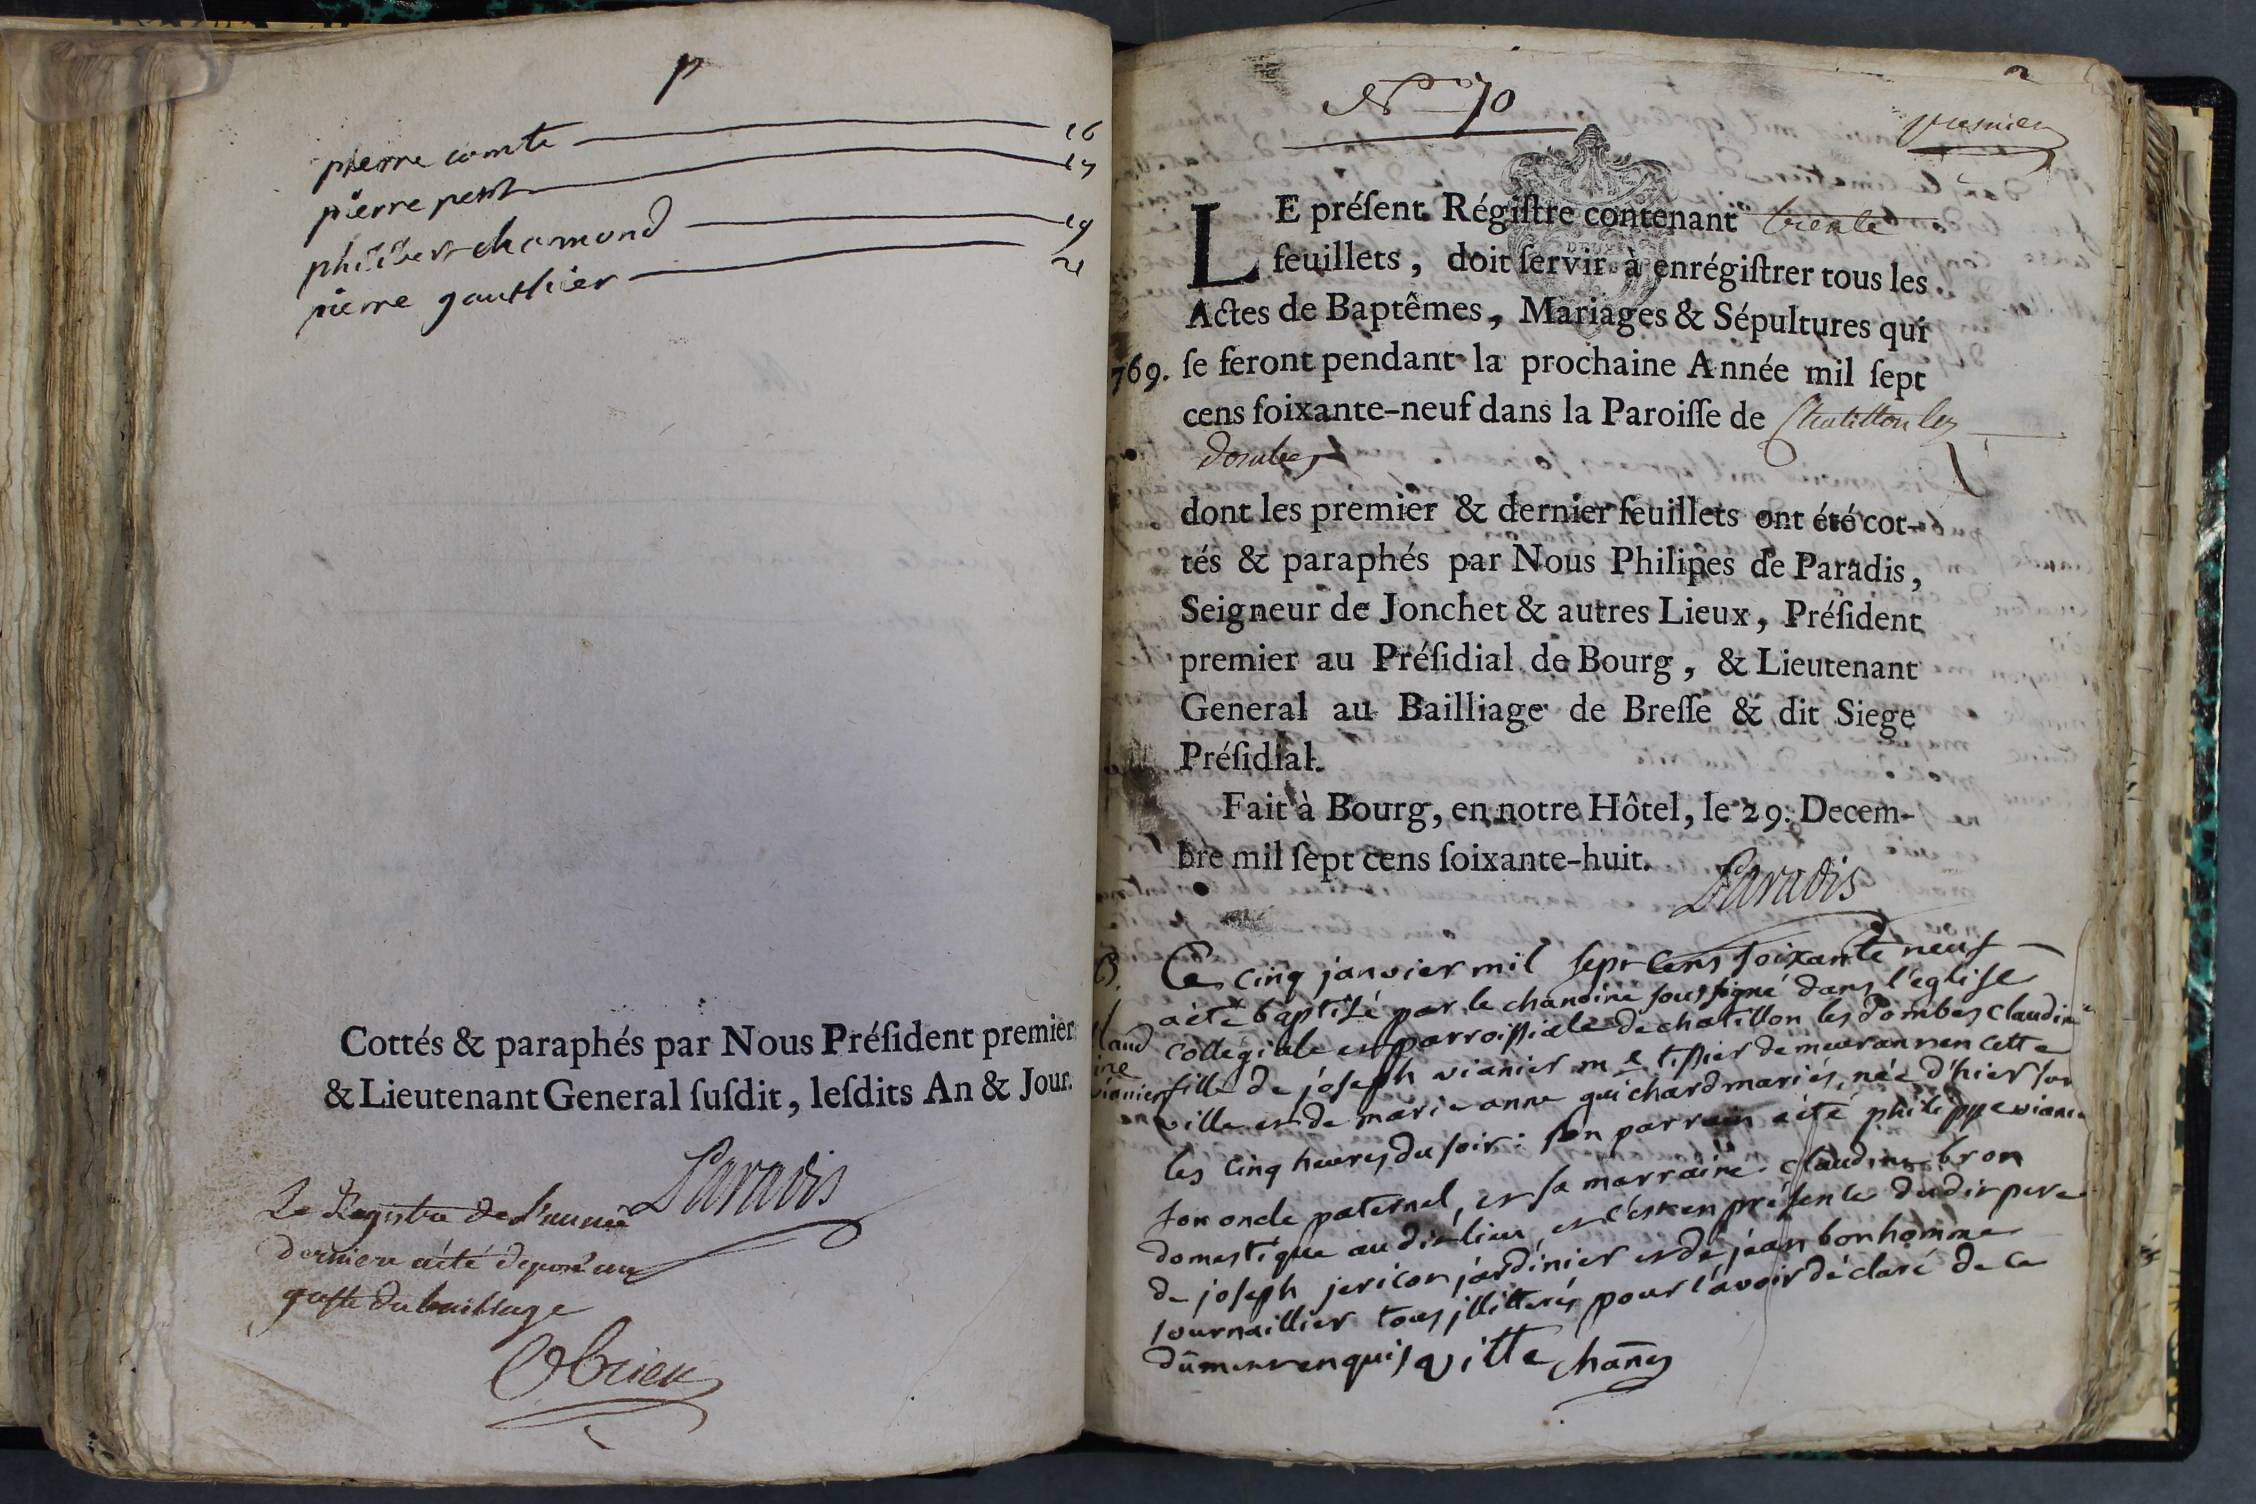 p
pierre comte 16
pierre petit 17
philibert chamond 19
pierre gauthier 21
Cottés & paraphés par Nous Préſident premier
& Lieutenant General ſuſdit, leſdits An & Jour.
Paradis
Le Registre de l'année
derniere a été deposé au
greffe du bailliage
Obrien
2
N° 70
premier
LE préſent Régiſtre contenant trente
feuillets, doit ſervir à enrégiſtrer tous les
Actes de Baptêmes, Mariages & Sépultures qui
769. ſe feront pendant la prochaine Année mil ſept
cens ſoixante-neuf dans la Paroiſſe de Chatillon les
Dombes
dont les premier & dernier feuillets ont été cot-
tés & paraphés par Nous Philipes de Paradis,
Seigneur de Jonchet & autres Lieux, Préſident
premier au Préſidial de Bourg, & Lieutenant
General au Bailliage de Breſſe & dit Siege
Préſidial.
Fait à Bourg, en notre Hôtel, le 29. Decem-
bre mil ſept cens ſoixante-huit.
Paradis
B.
laud
ine
vianier
Ce cinq janvier mil sept cens soixante neuf
a été baptisé par le chanoine soussigné dans l'eglise
collegiale et parroissiale de chatillon les dombes claudine
fille de joseph vianier m.e tissier demeurant en cette
ville et de marie anne guichard mariés, née d'hier sur
les cinq heures du soir: son parrain a été philippe vianier
son oncle paternel, et sa marraine claudine bron
domestique au dit lieu, et c'est en présence dudit pere
de joseph jericot jardinier et de jean bonhomme
journaillier tous jllitterés pour l'avoir déclaré de ce
dûment enquis vitte chanȇ